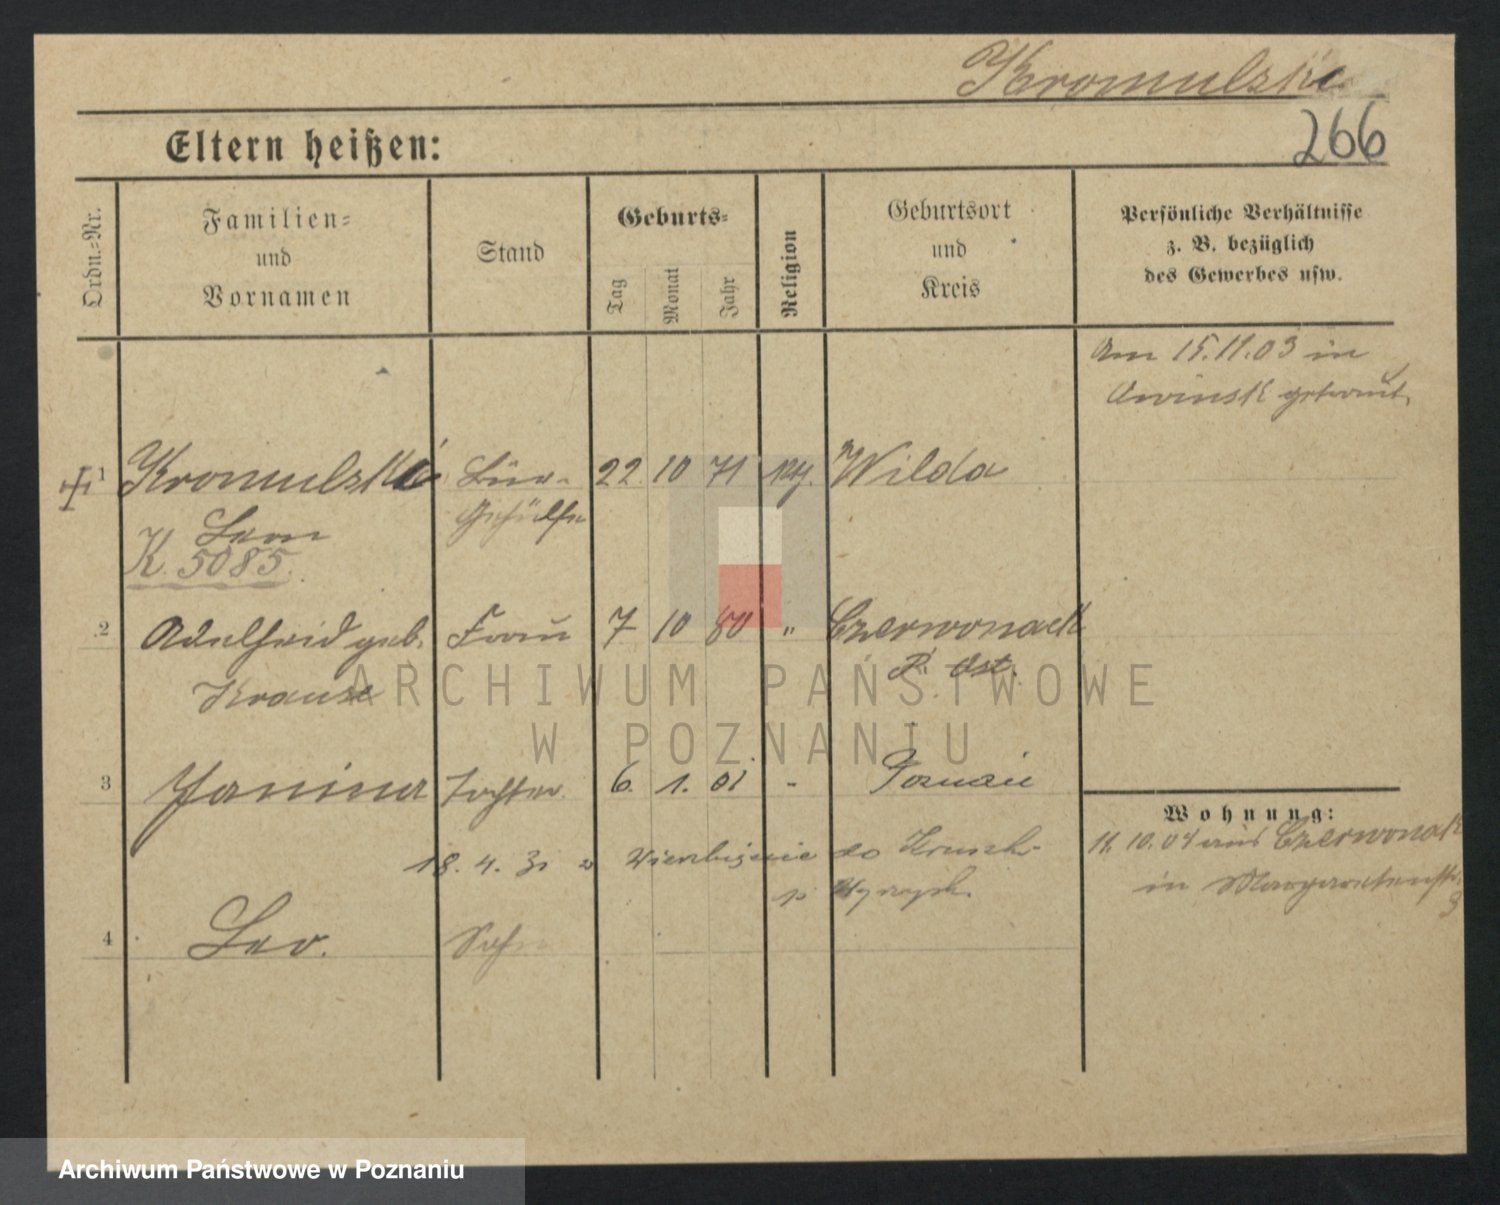 Kromulski
Eltern heißen:
266
Ordn.=Nr.
Familien=
und
Vornamen
Stand
Geburts=
Tag
Monat
Jahr
Religion
Geburtsort
und
Kreis
Persönliche Verhältnisse
z. B. bezüglich
des Gewerbes usw.
Am 15.11.03 in
getraut.
1 Kromulski Bür- 22 10 71 Wilda
Leon Gehülfe
K. 5085.
2 Adelheid geb. Frau 7 10 80 " Czerwonack
Krause P. Ost.
3 Janina Tochter. 6. 1. 01 - Poznań
Wohnung:
11.10.04 aus Czerwonack
in Margaretenstr.
9
18. 4. 31 z do
p.
4 Leo. Sohn
ARCHIWUM PAŃSTWOWE
W POZNANIU
Archiwum Państwowe w Poznaniu